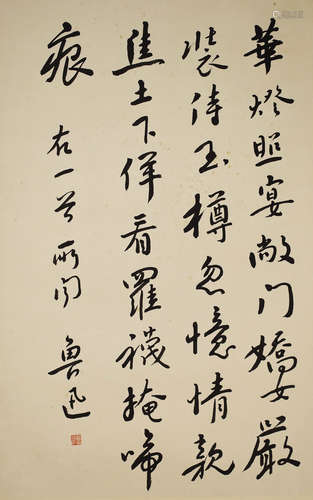 華燈照宴敞門嬌女嚴
裝侍玉樽忽憶情親
焦土下佯看羅襪掩啼
痕
右一首所聞 魯迅